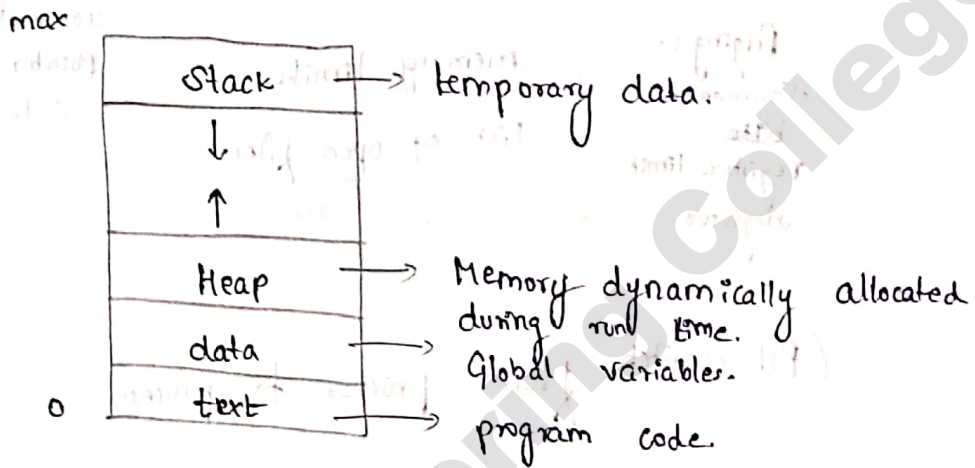 max
Stack → temporary data.
↓
↑
Heap → Memory dynamically allocated
during run time.
data → Global variables.
0 text → program code.
ering College